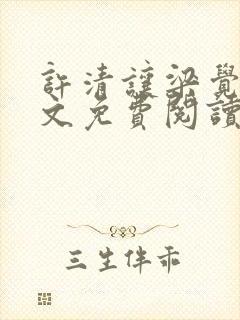 許清讓梁覺
文免費閱讀
三生伴乖